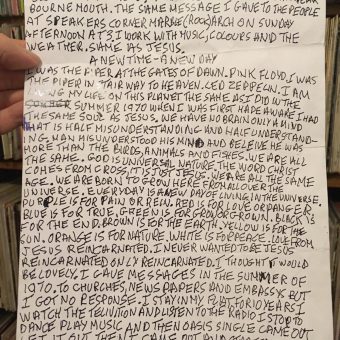 BOURNEMOUTH. THE SAME MESSAGE I GAVE TO THE PEOPLE
AT SPEAKERS CORNER MARBLE (ROCK) ARCH ON SUNDAY
AFTERNOON AT 3. I WORK WITH MUSIC, COLOURS AND THE
WEATHER. SAME AS JESUS.
A NEW TIME - A NEW DAY
I WAS THE PIPER AT THE GATES OF DAWN. PINK FLOYD, I WAS
THE PIPER IN STAIRWAY TO HEAVEN. LED ZEPPELIN. I AM
LIVING MY LIFE ON THIS PLANET THE SAME AS I DID IN THE
SUMMER 1970 WHEN I WAS FIRST MADE AWARE I HAD
THE SAME SOUL AS JESUS. WE HAVE NO BRAIN ONLY A MIND
THAT IS HALF MISUNDERSTANDING AND HALF UNDERSTAND-
ING. MAN MISUNDERSTOOD HIS MIND AND BELEIVE HE WAS
MORE THAN THE BIRDS, ANIMALS AND FISHES. WE ARE ALL
THE SAME. GOD IS UNIVERSAL NATURE, THE WORD CHRIST
COMES FROM CROSS, IT IS JUST JESUS. WE ARE ALL THE SAME
AGE. WE ARE BORN TO GROW HERE FROM ALL OVER THE
UNIVERSE. EVERYDAY IS A NEW DAY OF LIVING IN THE UNIVERSE.
PURPLE IS FOR PAIN OR REIN. RED IS FOR LOVE OR DANGER
BLUE IS FOR TRUE, GREEN IS FOR GROW OR GROWN. BLACK IS
FOR THE END. BROWN IS FOR THE EARTH. YELLOW IS FOR THE
SUN. ORANGE IS FOR NATURE. WHITE IS FOR PEACE. LOVE FROM
JESUS REINCARNATED. I NEVER WANTED TO BE JESUS
REINCARNATED ONLY REINCARNATED. I THOUGHT I WOULD
BE LOVELY. I GAVE MESSAGES IN THE SUMMER OF
1970. TO CHURCHES, NEWS PAPERS AND EMBASSYS BUT
I GOT NO RESPONSE. I STAY IN MY FLAT FOR 10 YEARS I
WATCH THE TELIVITION AND LISTEN TO THE RADIO I STOD TO
DANCE PLAY MUSIC AND THEN OASIS SINGLE CAME OUT